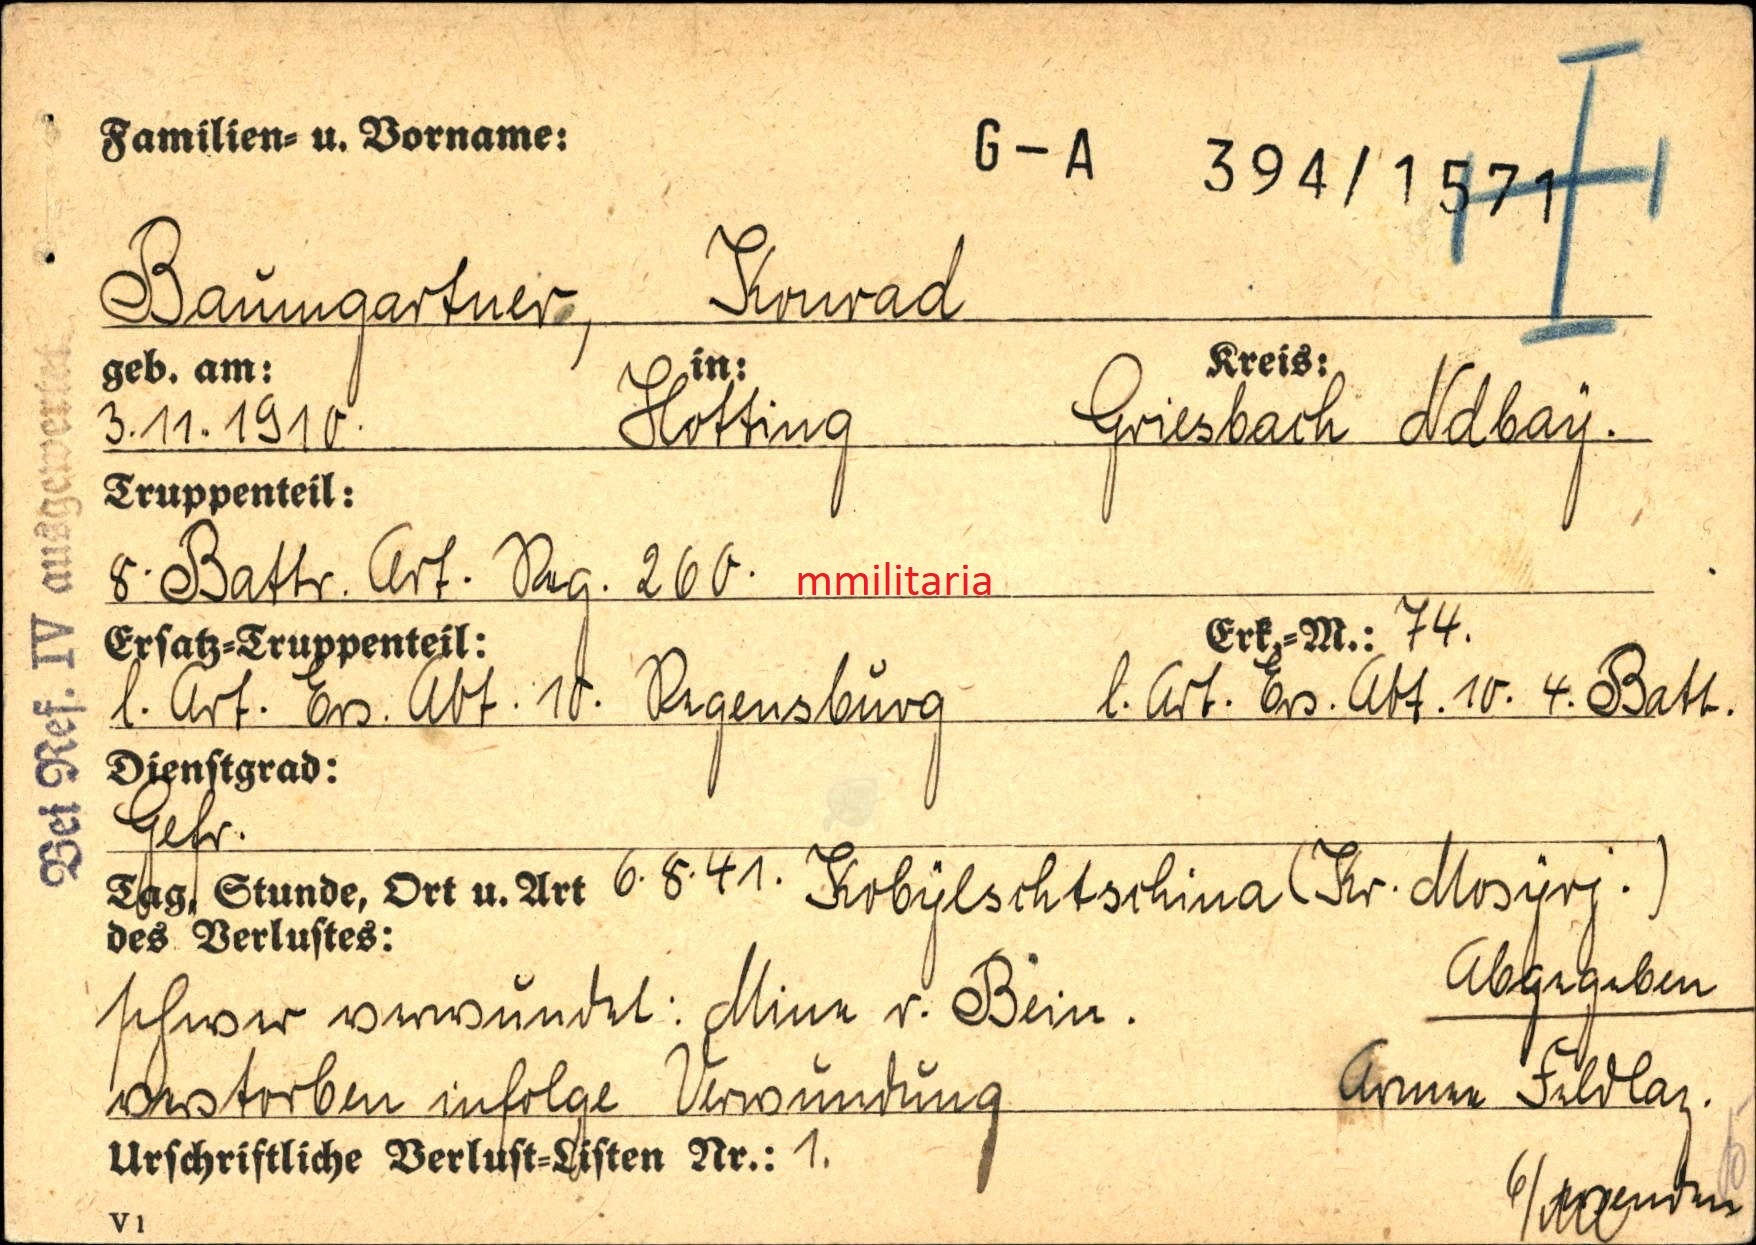 Familien- u. Vorname:
G-A 394/1571
Baumgartner, Konrad
geb. am: in: Kreis:
3.11.1910. Hotting Griesbach Ndbay.
Truppenteil:
8. Battr. Art. Reg. 260.
mmilitaria
Ersatz-Truppenteil: Erk.-M.: 74.
l. Art. Ers. Abt. 10. Regensburg l. Art. Ers. Abt. 10. 4. Batt.
Dienstgrad:
Gefr.
Tag, Stunde, Ort u. Art 6.8.41. Kobylschtschina (Kr. Mosyrj.)
des Verlustes:
Abgegeben
schwer verwundet: Mine r. Bein.
Armee Feldlaz.
verstorben infolge Verwundung
Urschriftliche Verlust-Listen Nr.: 1.
6/ wenden
V1
Bei Ref. IV ausgewertet